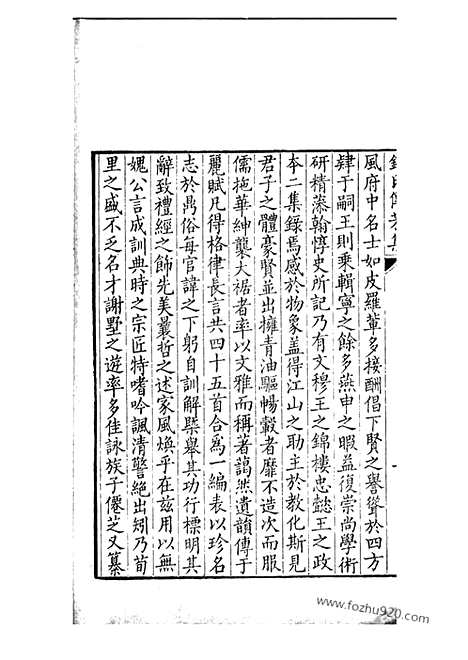 風府中名士如皮羅軰多接酬倡下賢之譽聳於四方
肆于嗣王則乗輯寧之餘多燕申之暇益復崇尚學術
研精藻翰惇史所記乃有文穆王之錦樓忠懿王之政
本二集錄焉感於物象盖得江山之助主於教化斯見
君子之體豪賢並出擁青油驅暢轂者靡不造次而服
儒拖華紳襲大裾者率以文雅而稱著藹然遺韻傳于
麗賦凡得格律長言共四十五首合爲一編表以珍名
志於𠔃俗每官諱之下躬自訓解槩舉其功行標明其
辭致禮經之飾先美曩哲之述家風煥乎在兹用以無
媿公言成訓典時之宗匠特嗜吟諷清警絶出矧乃荀
里之盛不乏名才謝墅之遊率多佳詠族子僊芝又纂
www.fozhu920.com